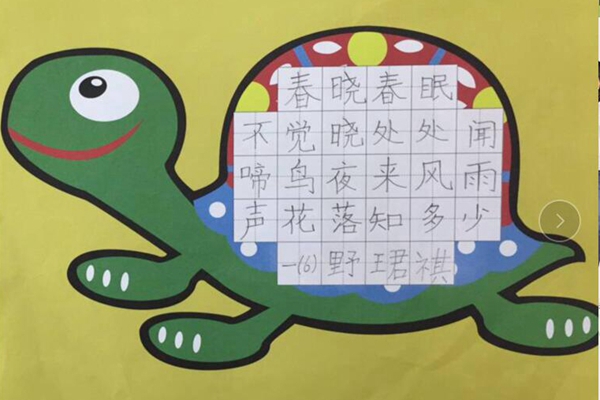 春晓春眠
不觉晓处处闻
啼鸟夜来风雨
声花落知多少
一(6)野珺祺